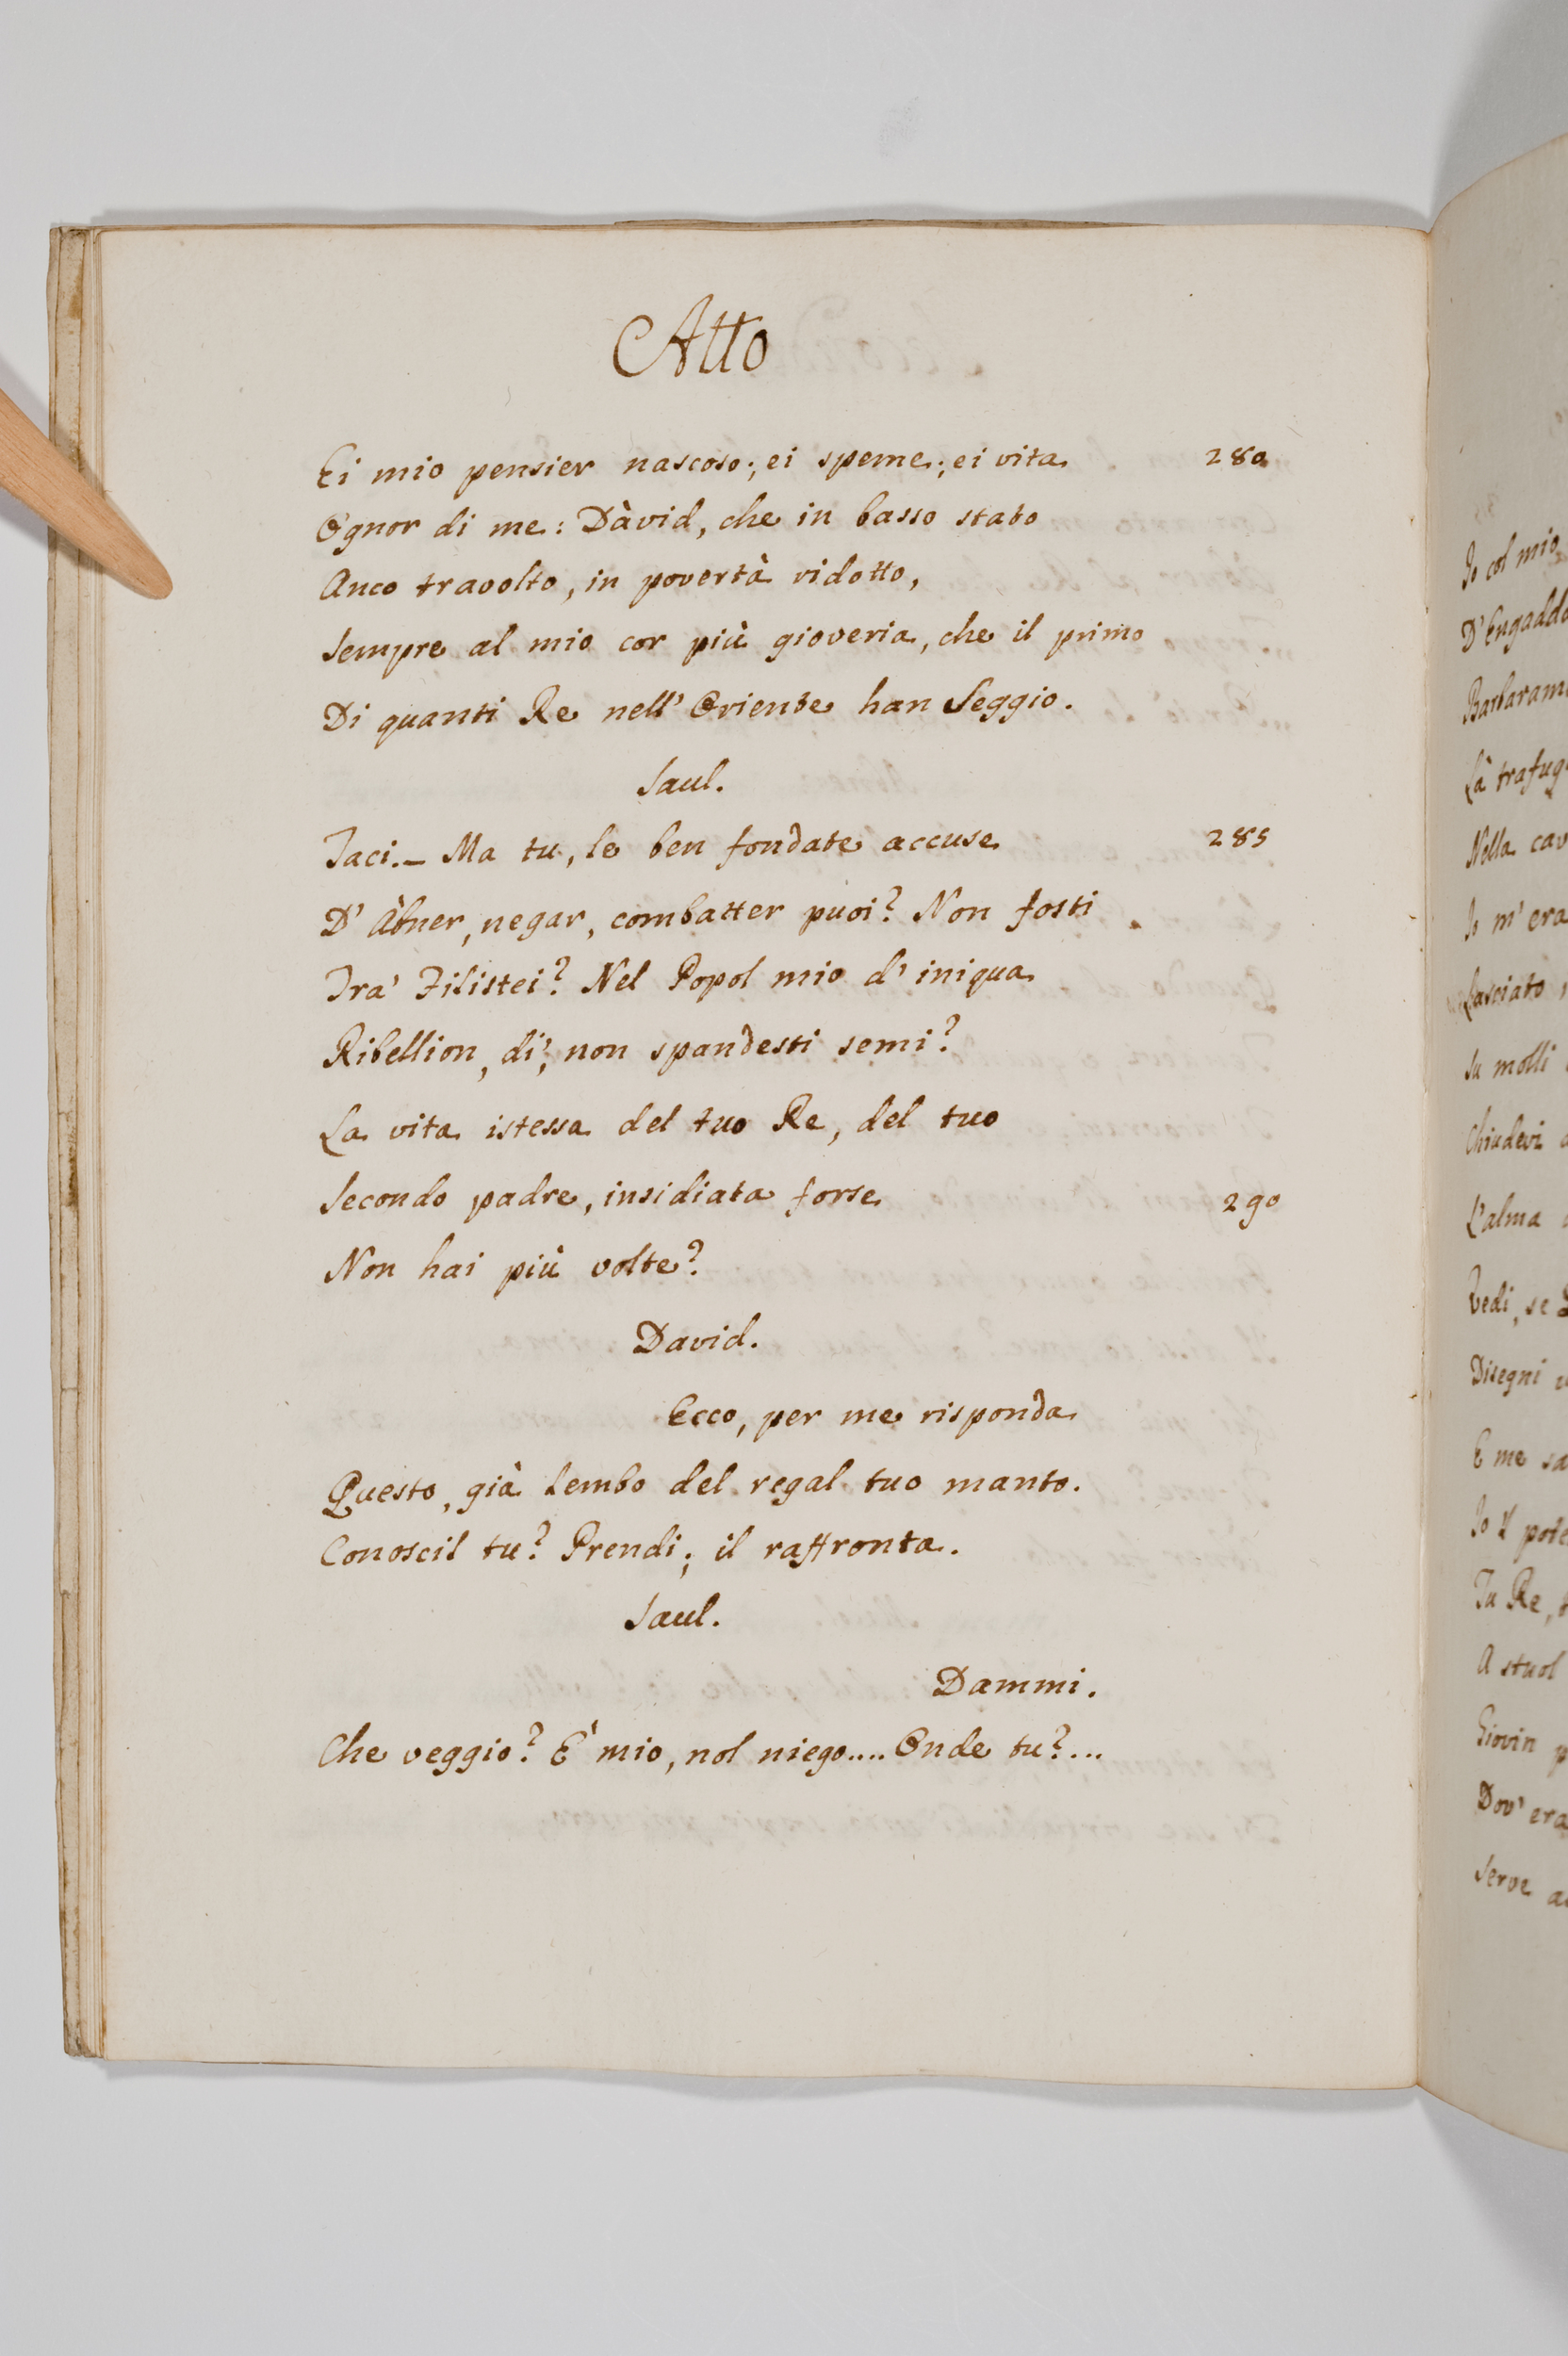 Atto
Ei mio pensier nascoso; ei speme; ei vita 280
Ognor di me: Dàvid, che in basso stato
Anco travolto, in povertà ridotto,
Sempre al mio cor più gioveria, che il primo
Di quanti Re nell' Oriente han Seggio.
Saul.
Taci._ Ma tu, le ben fondate accuse 285
D' Àbner, negar, combatter puoi? Non fosti
Tra' Filistei? Nel Popol mio d' iniqua
Ribellion, di', non spandesti semi?
La vita istessa del tuo Re, del tuo
Secondo padre, insidiata forse 290
Non hai più volte?
David.
Ecco, per me risponda
Questo, già lembo del regal tuo manto.
Conoscil tu? Prendi; il raffronta.
Saul.
Dammi.
Che veggio? È mio, nol niego.... Onde tu?...
Io col mio
D' Engadd
Barbaram
Là trafug
Nella cav
Io m' era
Lasciato,
Su molli
Chiudevi
L' alma
Vedi, se
Disegni
E me sa
Io il pote
Tu Re,
A stuol
Giovin p
Dov' era
Serve a